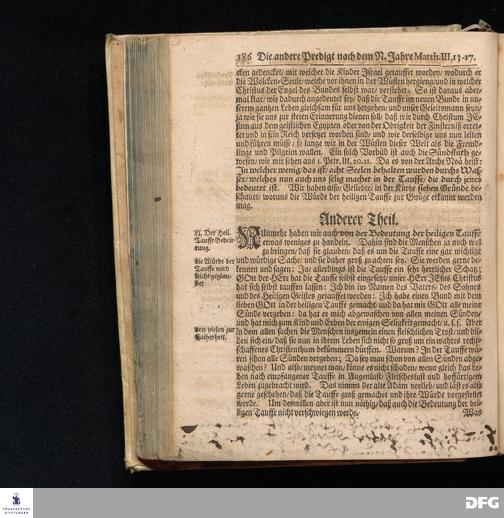 186 Die andere Predigt nach dem N. Jahre Matth. III, 13-17.
cken gedencket/ mit welcher die Kinder Israel getauffet worden/ wodurch er
die Wolcken-Seule/ welche vor ihnen in der Wüsten hergieng/ und in welcher
Christus der Engel des Bundes selbst war/ verstehet; So ist daraus aber-
mal klar/ wie dadurch angedeutet sey/ daß die Tauffe im neuen Bunde in un-
serem gantzen Leben gleichsam für uns hergehen/ und unser Geleitsmann seyn/
ja wie sie uns zur steten Erinnerung dienen soll/ daß wir durch Christum JE-
sum aus dem geistlichen Egypten oder von der Obrigkeit der Finsterniß erret-
tet und in sein Reich versetzet worden sind/ und wie derselbige uns nun leiten
und führen müsse/ so lange wir in der Wüsten dieser Welt als die Fremd-
linge und Pilgrim wallen. Ein solch Vorbild ist auch die Sündfluth ge-
wesen/ wie wir sehen aus 1. Petr. III, 20.21. Da es von der Arche Noä heist:
In welcher wenig/ das ist/ acht Seelen behalten wurden durchs Was-
ser/ welches nun auch uns selig machet in der Tauffe/ die durch jenes
bedeutet ist. Wir haben also/ Geliebte/ in der Kürtze sieben Gründe be-
schauet/ woraus die Würde der heiligen Tauffe zur Gnüge erkannt werden
mag.
Anderer Theil.
II. Der Heil.
Tauffe Bedeu-
tung.
Nunmehr haben wir auch von der Bedeutung der heiligen Tauffe
etwas weniges zu handeln. Dahin sind die Menschen ja noch wol
zu bringen/ daß sie glauben/ daß es um die Tauffe eine gar wichtige
und würdige Sache/ und sie daher groß zu achten sey. Sie werden gerne be-
kennen und sagen: Ja/ allerdings ist die Tauffe ein sehr herrlicher Schatz;
GOtt der HErr hat die Tauffe selbst eingesetzt/ unser HErr JEsus Christus
hat sich selbst tauffen lassen: Ich bin im Namen des Vaters/ des Sohnes
und des Heiligen Geistes getauffet worden: Ich habe einen Bund mit dem
lieben GOtt in der heiligen Tauffe gemacht/ und da hat mir GOtt alle meine
Sünde vergeben: da hat er mich abgewaschen von allen meinen Sünden/
und hat mich zum Kind und Erben der ewigen Seligkeit gemacht/ u. s. f. Aber
in dem allen suchen die Menschen insgemein einen fleischlichen Trost/ und bil-
den sich ein/ daß sie nun in ihrem Leben sich nicht so groß um ein wahres recht-
schaffenes Christenthum bekümmern dürffen. Warum? In der Tauffe wä-
ren schon alle Sünden vergeben; Da sey man schon von allen Sünden abge-
waschen! Und also/ meynet man/ könne es nicht schaden/ wenn gleich das Le-
ben nach empfangener Tauffe in Augenlust/ Fleischeslust und hoffärtigem
Leben zugebracht wird. Das nimmt der alte Adam vorlieb/ und läst es also
gerne geschehen/ daß die Tauffe groß gemachet und ihre Würde vorgestellet
werde. Um deswillen aber ist nun nöthig/ daß auch die Bedeutung der hei-
ligen Tauffe nicht verschwiegen werde.
Was
die Würde der
Tauffe wird
von vielen zur
Sicherheit.
FRANCKESCHE
STIFTUNGEN
DFG